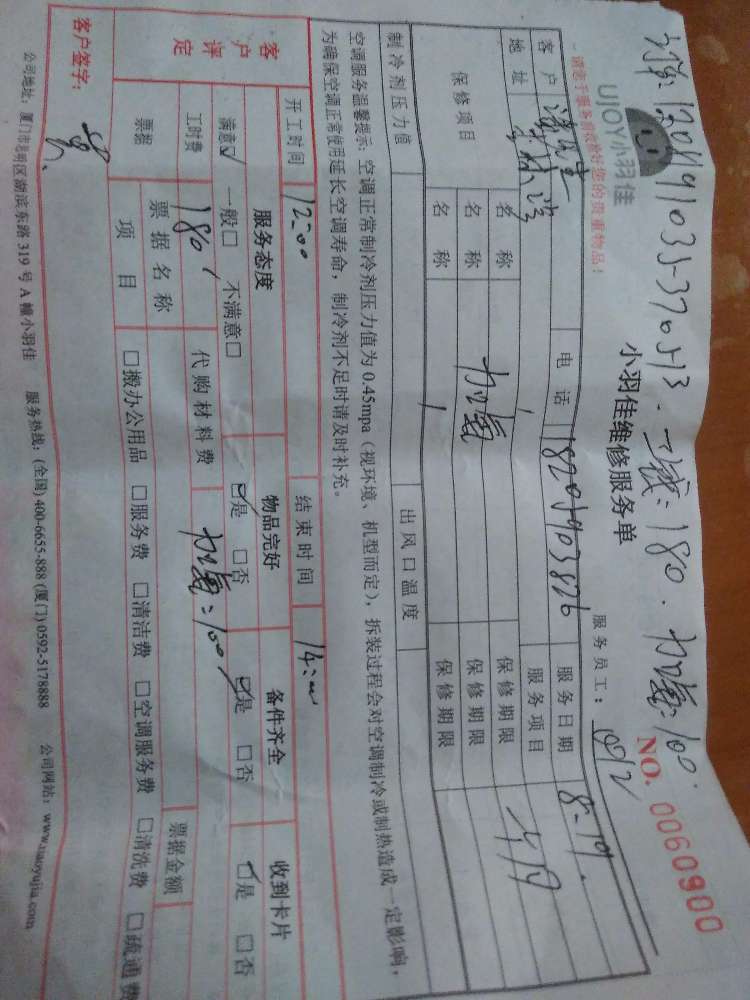 UJOY小羽佳
-请您于服务前收检好您的贵重物品!
工钱:180. 加氟:100.
小羽佳维修服务单
NO. 0060900
服务员工:
客户 电话 18205903826 服务日期
地址 服务项目
保修项目 名称 保修期限
名称 加氟 保修期限
名称 保修期限
制冷剂压力值 出风口温度
空调服务温馨提示:空调正常制冷剂压力值为0.45mpa(视环境、机型而定),拆装过程会对空调制冷或制热造成一定影响,
为确保空调正常使用延长空调寿命,制冷剂不足时请及时补充。
开工时间 12:00 结束时间 14:00
客户评定 服务态度 物品完好 备件齐全 收到卡片
满意☑ 一般□ 不满意□ ☑是 □否 ☑是 □否 ☑是 □否
工时费 180 代购材料费 加氟:100
票据 票据名称 票据金额
项目 □搬办公用品 □服务费 □清洁费 □空调服务费 □清洗费 □疏通费
客户签字:
公司地址:厦门市思明区湖滨东路319号A幢小羽佳 服务热线:(全国)400-6655-888(厦门)0592-5178888 公司网站:www.xiaoyujia.com